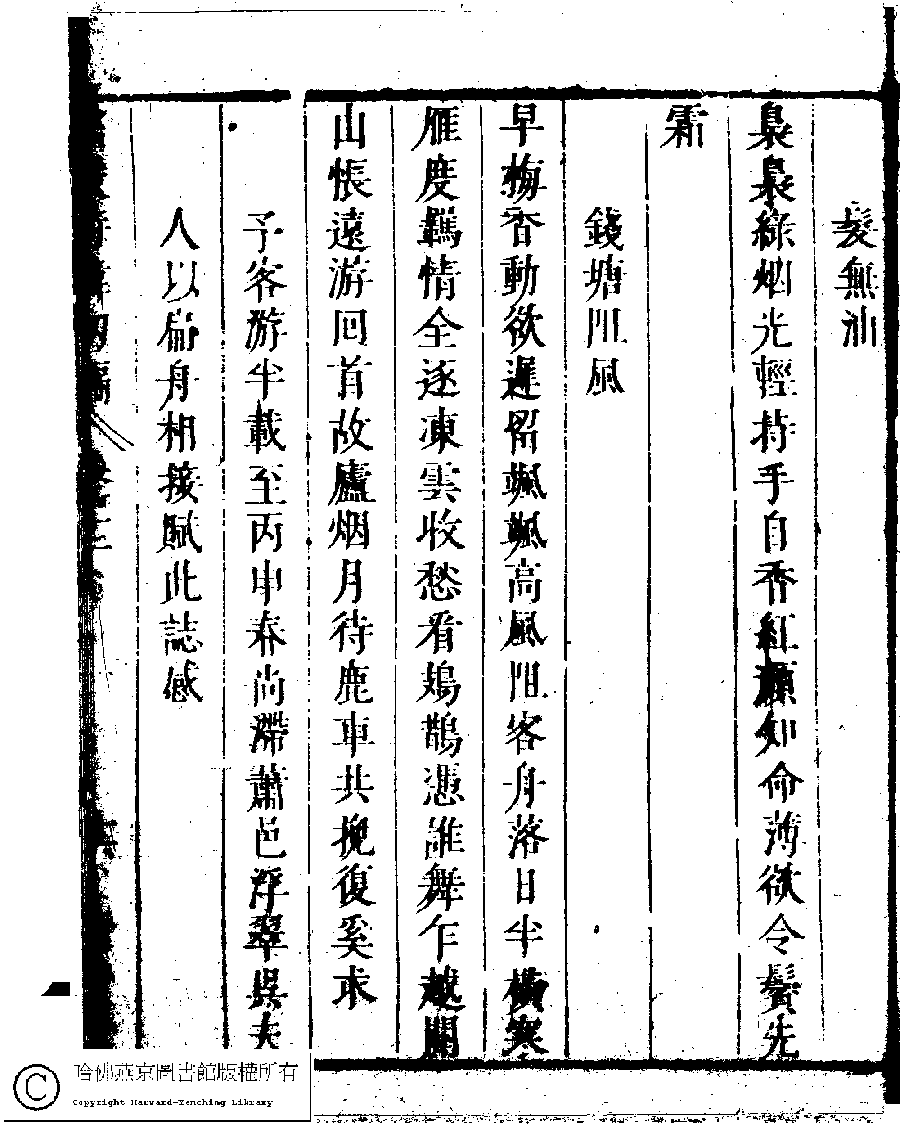 髮無油
裊裊綠烟光輕持手自香紅顏如命薄欲令鬢先
霜
錢塘阻風
早梅香動欲遲留颯颯高風阻客舟落日半橫寒
雁度羈情全逐凍雲收愁看鳷鵲憑誰舞乍越關
山悵遠游回首故廬烟月待鹿車共挽復奚求
予客游半載至丙申春尚滯蕭邑浮翠吳夫
人以扁舟相接賦此誌感
初稿 卷三
哈佛燕京圖書館版權所有
Copyright Harvard-Yenching Library